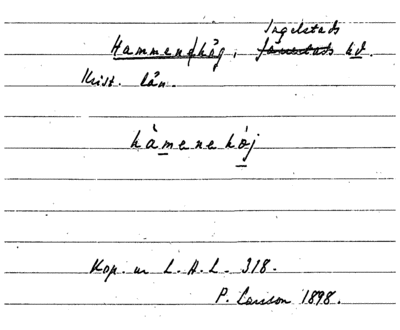 Ingelstads
Hammenhög, hd.
Krist. län.
hàmenehój
Kop. ur L.A.L. 318.
P. Larsson 1898.